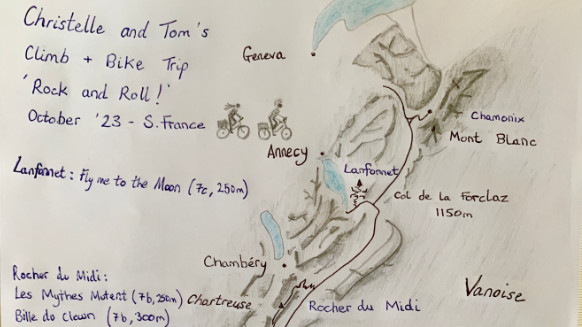 Christelle and Tom's
Climb + Bike Trip
'Rock and Roll!'
October '23 - S. France
Geneva
Chamonix
Mont Blanc
Annecy
Lanfonnet
Lanfonnet: Fly me to the Moon (7c, 250m)
Col de la Forclaz
1150m
Chambéry
Vanoise
Rocher du Midi:
Les Mythes Mutent (7b, 250m)
Chartreuse
Rocher du Midi
Bille do Clown (7b, 300m)